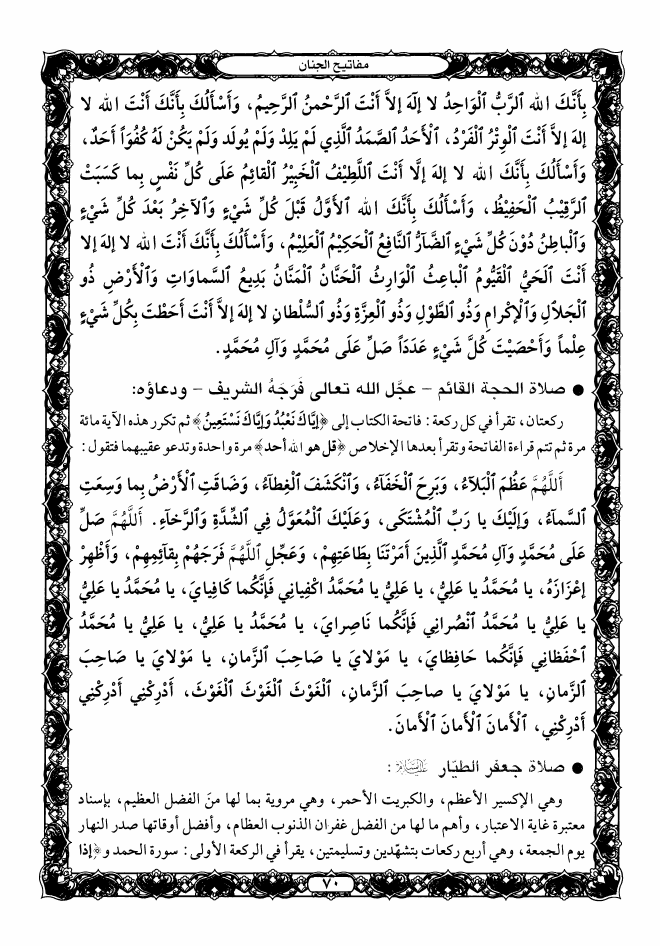 مفاتيح الجنان
بِأَنَّكَ الله ٱلرَّبُّ ٱلْوَاحِدُ لا إِلَهَ إِلاَّ أَنْتَ ٱلرَّحْمنُ ٱلرَّحِيمُ، وَأَسْأَلُكَ بِأَنَّكَ أَنْتَ الله لا
إِلهَ إِلاَّ أَنْتَ ٱلْوِتْرُ ٱلْفَرْدُ، ٱلْأَحَدُ ٱلصَّمَدُ ٱلَّذِي لَمْ يَلِدْ وَلَمْ يُولَد وَلَمْ يَكُنْ لَهُ كُفُوَاً أَحَدٌ،
وَأَسْأَلُكَ بِأَنَّكَ الله لا إِلهَ إِلَّا أَنْتَ ٱللَّطِيْفُ ٱلْخَبِيْرُ ٱلْقائِمُ عَلَى كُلِّ نَفْسٍ بِما كَسَبَتْ
ٱلرَّقِيْبُ ٱلْحَفِيْظُ، وَأَسْأَلُكَ بِأَنَّكَ الله ٱلأَوَّلُ قَبْلَ كُلِّ شَيْءٍ وَٱلآخِرُ بَعْدَ كُلِّ شَيْءٍ
وَٱلْباطِنُ دُوْنَ كُلِّ شَيْءٍ ٱلضَّآرُّ ٱلنَّافِعُ ٱلْحَكِيْمُ ٱلْعَلِيْمُ، وَأَسْأَلُكَ بِأَنَّكَ أَنْتَ الله لا إِلهَ إلا
أَنْتَ ٱلْحَيُّ ٱلْقَيُّومُ ٱلْباعِثُ ٱلْوَارِثُ ٱلْحَنَّانُ ٱلْمَنَّانُ بَدِيعُ ٱلسَّماوَاتِ وَٱلْأَرْضِ ذُو
ٱلْجَلالِ وَٱلْإِكْرامِ وَذُو ٱلطَّوْلِ وَذُو ٱلْعِزَّةِ وَذُو ٱلسُّلْطانِ لا إِلهَ إِلاَّ أَنْتَ أَحَطْتَ بِكُلِّ شَيْءٍ
عِلْماً وَأَحْصَيْتَ كُلَّ شَيْءٍ عَدَدَاً صَلِّ عَلَى مُحَمَّدٍ وَآلِ مُحَمَّدٍ.
● صلاة الحجة القائم – عجَّل الله تعالى فَرَجَهُ الشريف – ودعاؤه:
ركعتان، تقرأ في كل ركعة: فاتحة الكتاب إلى ﴿إِيَّاكَ نَعْبُدُ وَإِيَّاكَ نَسْتَعِينُ﴾ ثم تكرر هذه الآية مائة
مرة ثم تتم قراءة الفاتحة وتقرأ بعدها الإخلاص ﴿قل هو الله أحد﴾ مرة واحدة وتدعو عقيبهما فتقول:
أَللَّهُمَّ عَظُمَ ٱلْبَلآءُ، وَبَرِحَ ٱلْخَفَآءُ، وَٱنْكَشَفَ ٱلْغِطآءُ، وَضَاقَتِ ٱلْأَرْضُ بِما وَسِعَتِ
ٱلسَّمآءُ، وَإِلَيْكَ يا رَبِّ ٱلْمُشْتَكَى، وَعَلَيْكَ ٱلْمُعَوَّلُ فِي ٱلشِّدَّةِ وَٱلرَّخآءِ. أَللَّهُمَّ صَلِّ
عَلَى مُحَمَّدٍ وَآلِ مُحَمَّدٍ ٱلَّذِينَ أَمَرْتَنَا بِطَاعَتِهِمْ، وَعَجِّلِ ٱللَّهُمَّ فَرَجَهُمْ بِقآئِمِهِمْ، وَأَظْهِرْ
إِعْزَازَهُ، يا مُحَمَّدُ يا عَلِيُّ، يا عَلِيُّ يا مُحَمَّدُ اكْفِيانِي فَإِنَّكُما كَافِيايَ، يا مُحَمَّدُ يا عَلِيُّ
يا عَلِيُّ يا مُحَمَّدُ ٱنْصُرانِي فَإِنَّكُما نَاصِرايَ، يا مُحَمَّدُ يا عَلِيُّ، يا عَلِيُّ يا مُحَمَّدُ
ٱحْفَظانِي فَإِنَّكُما حَافِظايَ، يا مَوْلايَ يا صاحِبَ ٱلزَّمانِ، يا مَوْلايَ يا صَاحِبَ
ٱلزَّمانِ، يا مَوْلايَ يا صاحِبَ ٱلزَّمانِ، ٱلْغَوْثَ ٱلْغَوْثَ ٱلْغَوْثَ، أَدْرِكْنِي أَدْرِكْنِي
أَدْرِكْنِي، ٱلْأَمانَ ٱلْأَمانَ ٱلْأَمانَ.
● صلاة جعفر الطيّار عليه السلام:
وهي الإكسير الأعظم، والكبريت الأحمر، وهي مروية بما لها منَ الفضل العظيم، بإسناد
معتبرة غاية الاعتبار، وأهم ما لها من الفضل غفران الذنوب العظام، وأفضل أوقاتها صدر النهار
يوم الجمعة، وهي أربع ركعات بتشهّدين وتسليمتين، يقرأ في الركعة الأولى: سورة الحمد و﴿إذا
٧٠